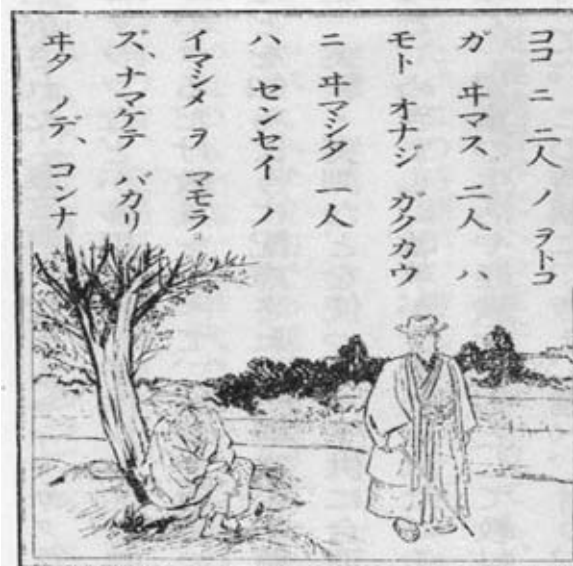 ココ ニ 二人 ノ ヲトコ
ガ ヰマス、二人 ハ
モト オナジ ガクカウ
ニ ヰマシタ 一人
ハ センセイ ノ
イマシメ ヲ マモラ
ズ、ナマケテ バカリ
ヰタ ノデ、コンナ